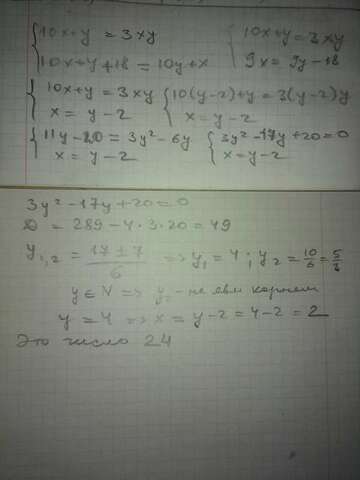 {10x+y = 3xy {10x+y = 3xy
{10x+y+18 = 10y+x {9x = 9y-18
{10x+y = 3xy {10(y-2)+y = 3(y-2)y
{x = y-2 {x = y-2
{11y-20 = 3y²-6y {3y²-17y+20=0
{x = y-2 {x = y-2
3y²-17y+20=0
D = 289-4·3·20=49
y₁,₂ = (17±7)/6 => y₁ = 4; y₂ = 10/6 = 5/3
y ∈ N => y₂ - не явл корнем
y = 4 => x = y-2 = 4-2 = 2
Это число 24